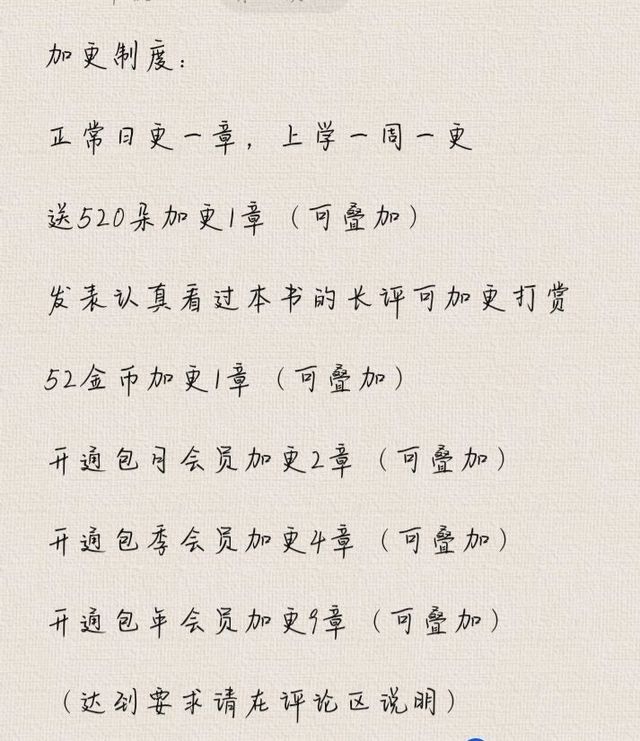 加更制度：
正常日更一章，上学一周一更
送520朵加更1章（可叠加）
发表认真看过本书的长评可加更打赏
52金币加更1章（可叠加）
开通包月会员加更2章（可叠加）
开通包季会员加更4章（可叠加）
开通包年会员加更9章（可叠加）
（达到要求请在评论区说明）